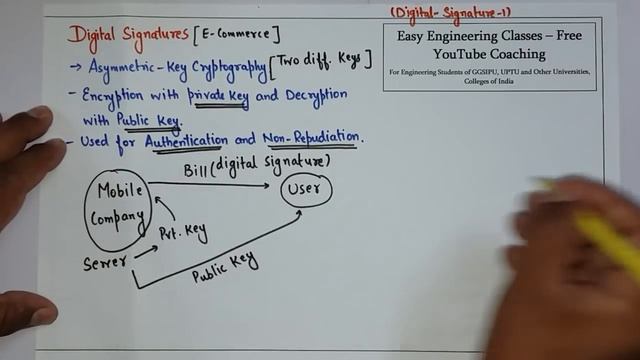 (Digital-Signature-1)
Digital Signatures [E-Commerce]
Easy Engineering Classes – Free
YouTube Coaching
For Engineering Students of GGSIPU, UPTU and Other Universities,
Colleges of India
→ Asymmetric-Key Cryptography [Two diff. Keys]
- Encryption with private Key and Decryption
with Public Key.
- Used for Authentication and Non-Repudiation.
Bill (digital signature)
Mobile
Company
User
Pvt. Key
Server
Public Key